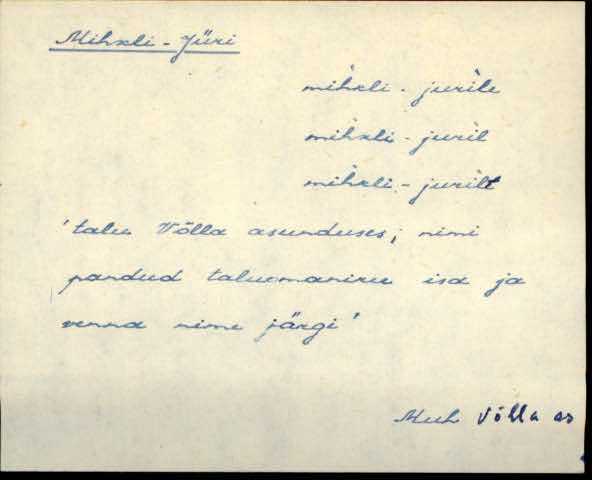 Mihkli-Jüri
mihkli-jurile
mihkli-juril
mihkli-jurilt
'talu Võlla asunduses; nimi
pandud taluomaniku isa ja
venna nime järgi'
Muh Võlla as